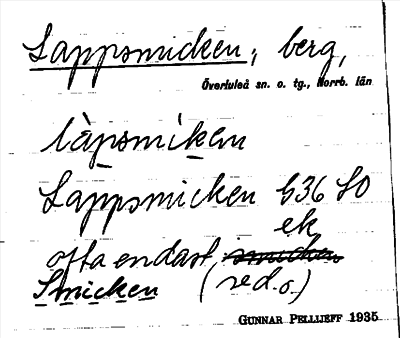 Lappsmicken, berg,
Överluleå sn. o. tg., Norrb. län
làpsmiken
Lappsmicken G36 SO
ek
ofta endast smicken
Smicken (se d.o.)
GUNNAR PELLIJEFF 1935